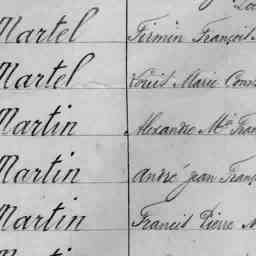 Martel Firmin François
Martel Louis Marie
Martin Alexandre Mie
Martin André Jean
Martin Francis Pierre
Martin